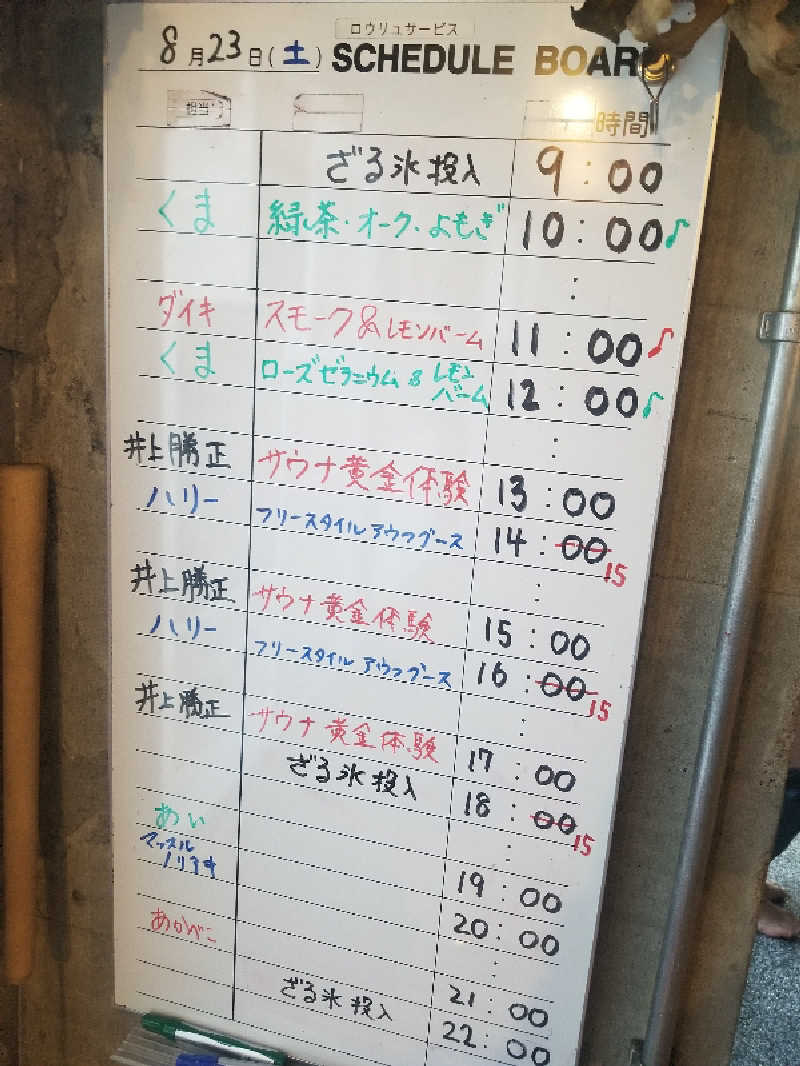 ロウリュサービス
8月23日(土) SCHEDULE BOARD
担当 時間
ざる氷投入 9:00
くま 緑茶・オーク・よもぎ 10:00♪
:
ダイキ スモーク&レモンバーム 11:00♪
くま ローズゼラニウム&レモンバーム 12:00♪
:
井上勝正 サウナ黄金体験 13:00
ハリー フリースタイルアウフグース 14:00 15
:
井上勝正 サウナ黄金体験 15:00
ハリー フリースタイルアウフグース 16:00 15
:
井上勝正 サウナ黄金体験 17:00
ざる氷投入 18:00 15
:
あい 19:00
マッスル 20:00
:
あかべこ 21:00
ざる氷投入 22:00